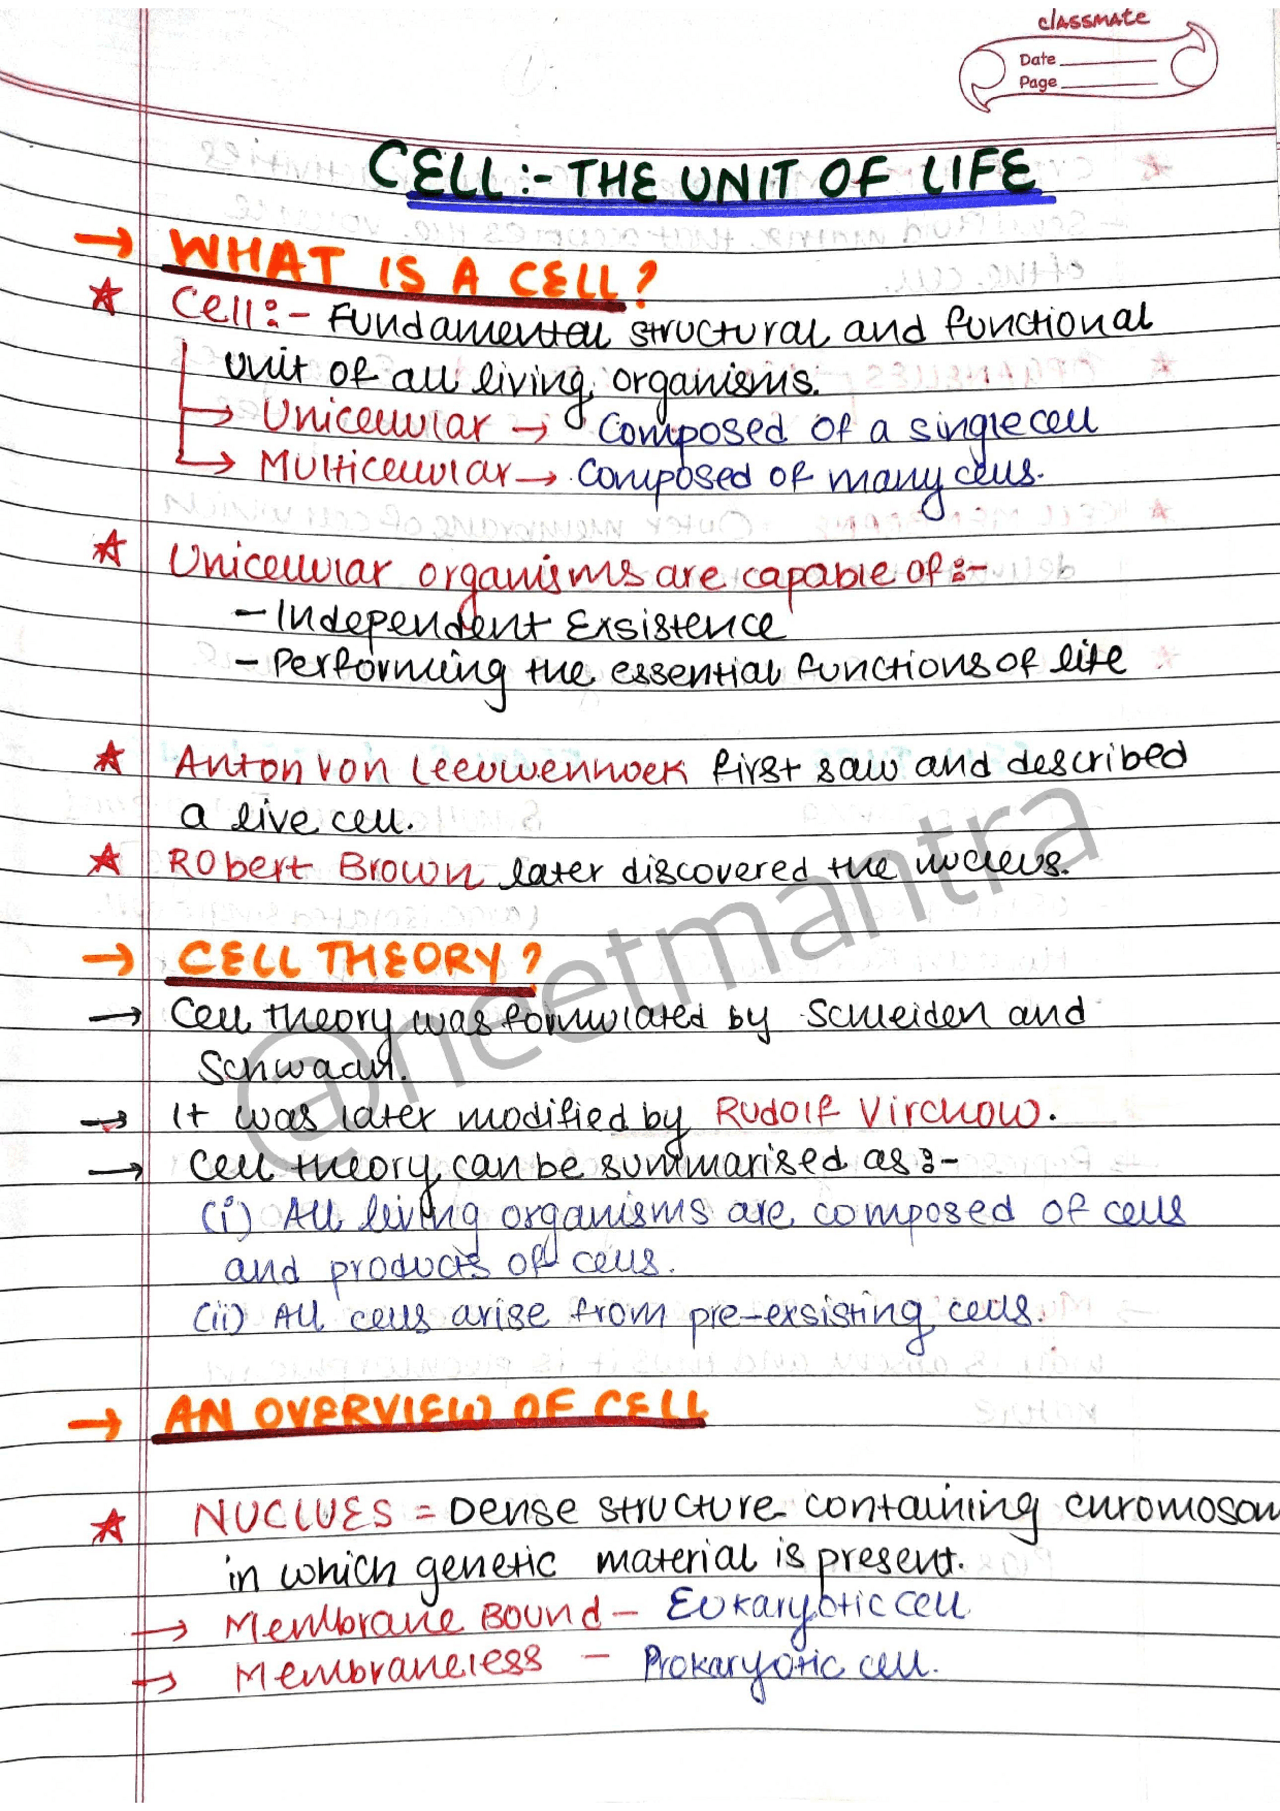 classmate
Date
Page
CELL:- THE UNIT OF LIFE
→ WHAT IS A CELL?
★ Cell:- Fundamental structural and functional
unit of all living organisms.
→ Unicellular → Composed of a single cell
→ Multicellular → Composed of many cells.
★ Unicellular organisms are capable of:-
- Independent Exsistence
- Performing the essential functions of life
★ Anton Von Leeuwenhoek first saw and described
a live cell.
★ Robert Brown later discovered the nucleus.
@neetmantra
→ CELL THEORY?
→ Cell theory was formulated by Schleiden and
Schwaan.
→ It was later modified by Rudolf Virchow.
→ Cell theory can be summarised as:-
(i) All living organisms are composed of cells
and products of cells.
(ii) All cells arise from pre-exsisting cells.
→ AN OVERVIEW OF CELL
★ NUCLUES = Dense structure containing chromosom
in which genetic material is present.
→ Membrane Bound - Eukaryotic cell
→ Membraneless - Prokaryotic cell.